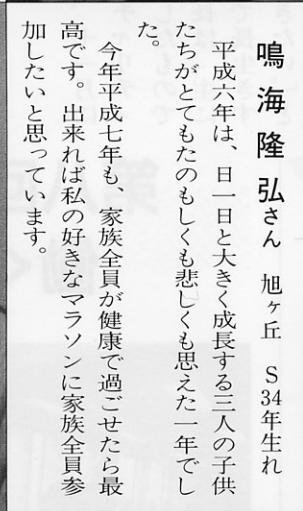 鳴海隆弘さん 旭ヶ丘 S34年生れ
平成六年は、日一日と大きく成長する三人の子供
たちがとてもたのもしくも悲しくも思えた一年でし
た。
今年平成七年も、家族全員が健康で過ごせたら最
高です。出来れば私の好きなマラソンに家族全員参
加したいと思っています。